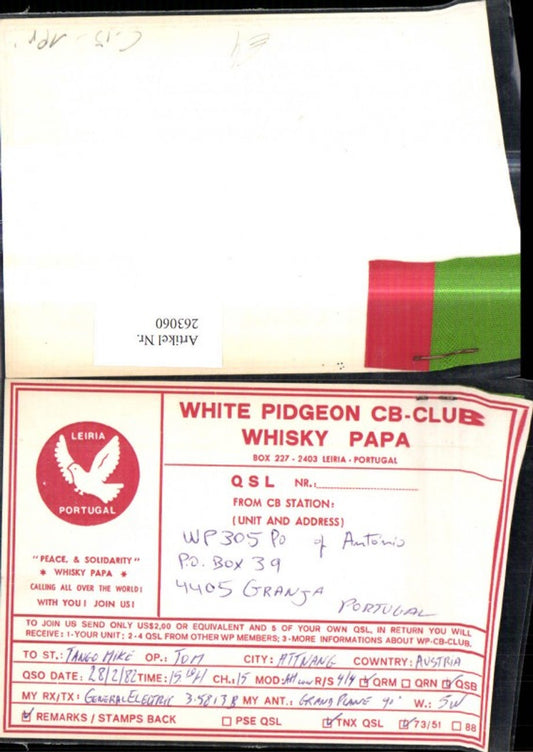 C-15 - APR.
E4
Artikel Nr.
263060
LEIRIA
PORTUGAL
"PEACE, & SOLIDARITY"
* WHISKY PAPA *
CALLING ALL OVER THE WORLD!
WITH YOU! JOIN US!
WHITE PIDGEON CB-CLUB
WHISKY PAPA
BOX 227 - 2403 LEIRIA - PORTUGAL
QSL NR.:
FROM CB STATION:
(UNIT AND ADDRESS)
WP305 PO of Antonio
P.O. BOX 39
4405 GRANJA
PORTUGAL
TO JOIN US SEND ONLY US$2,00 OR EQUIVALENT AND 5 OF YOUR OWN QSL, IN RETURN YOU WILL
RECEIVE: 1-YOUR UNIT; 2-4 QSL FROM OTHER WP MEMBERS; 3-MORE INFORMATIONS ABOUT WP-CB-CLUB.
TO ST.: TANGO MIKE OP.: TOM CITY: ATTNANG COWNTRY: AUSTRIA
QSO DATE: 28/2/82 TIME: 15 CH.: 15 MOD: R/S 4/4 QRM QRN QSB
MY RX/TX: GENERAL ELECTRIC 3-5813B MY ANT.: GRAND PLANE W.: 5W
REMARKS / STAMPS BACK PSE QSL TNX QSL 73/51 88